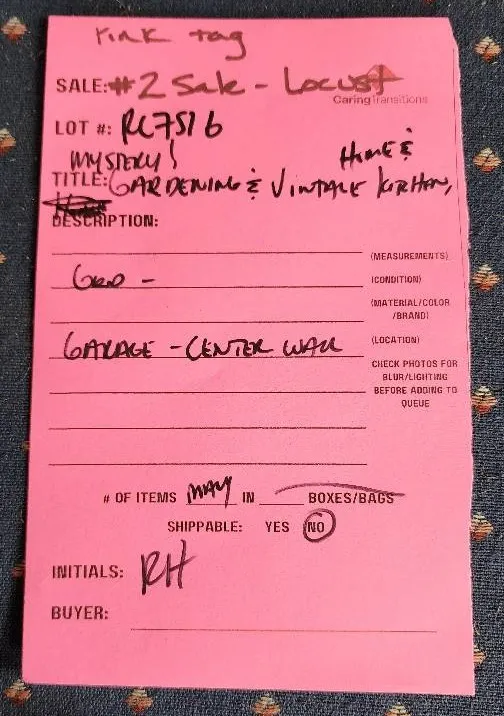 Pink tag
SALE: #2 Sale - Locust
CaringTransitions
LOT #: RC7516
MYSTERY! HOME &
TITLE: GARDENING & VINTAGE KITCHEN,
DESCRIPTION:
(MEASUREMENTS)
GOOD - (CONDITION)
(MATERIAL/COLOR
/BRAND)
GARAGE - CENTER WALL (LOCATION)
CHECK PHOTOS FOR
BLUR/LIGHTING
BEFORE ADDING TO
QUEUE
# OF ITEMS MANY IN ____ BOXES/BAGS
SHIPPABLE: YES NO
INITIALS: RH
BUYER: